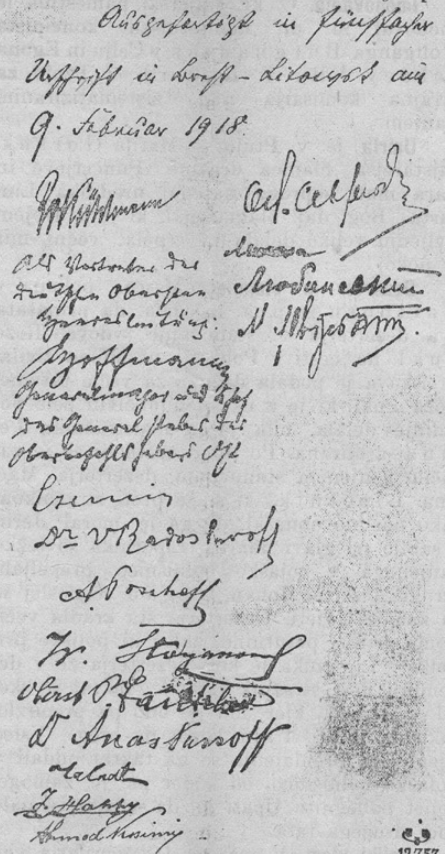 Ausgefertigt in fünffacher
Urschrift in Brest-Litowsk am
9. Februar 1918.
Kühlmann
Als Vertreter der
deutschen Obersten
Heeresleitung:
Hoffmann
Generalmajor und Chef
des Generalstabes des
Oberbefehlshabers Ost
Czernin
Dr. V Radoslavoff
A Toscheff
Oberst P.
Dr Anastassoff
Talaat
I. Hakky
Ahmed Nessimy
Ол. Севрюк
Любинський
М